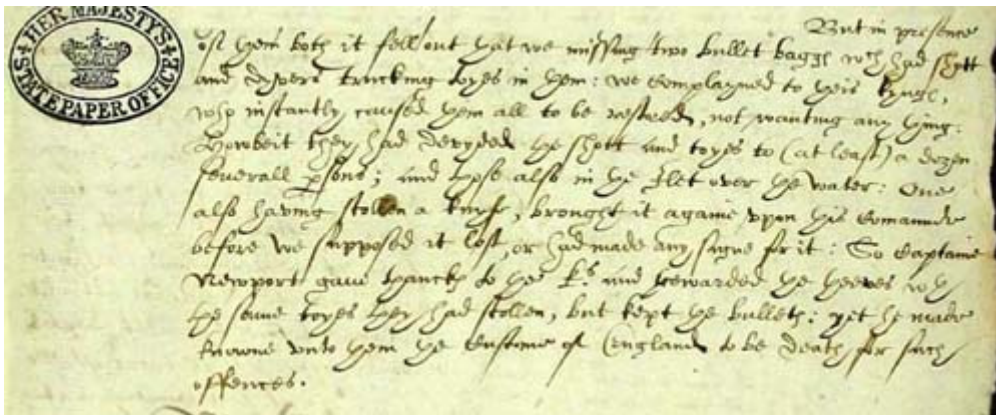 HER MAJESTY'S
STATE PAPER OFFICE
But in presence
of them both it fell out that we missing two bullet baggs wch had shott
and Dyvers trucking toyes in them: we complayned to theis kynges,
who instantly caused them all to be restored, not wanting any thing.
Howbeit they had devyded the shott and toyes to (at least) a dozen
severall psons; and those also in the Ilet over the water: One
also having stollen a knyfe, brought it againe upon his comaunde
before we supposed it lost, or had made any signe for it: So Captaine
Newport gave thancks to the ks and rewarded the theeves wth
the same toyes they had stollen, but kept the bullets: yet he made
knowne unto them the Custome of England to be Death for such
offences.